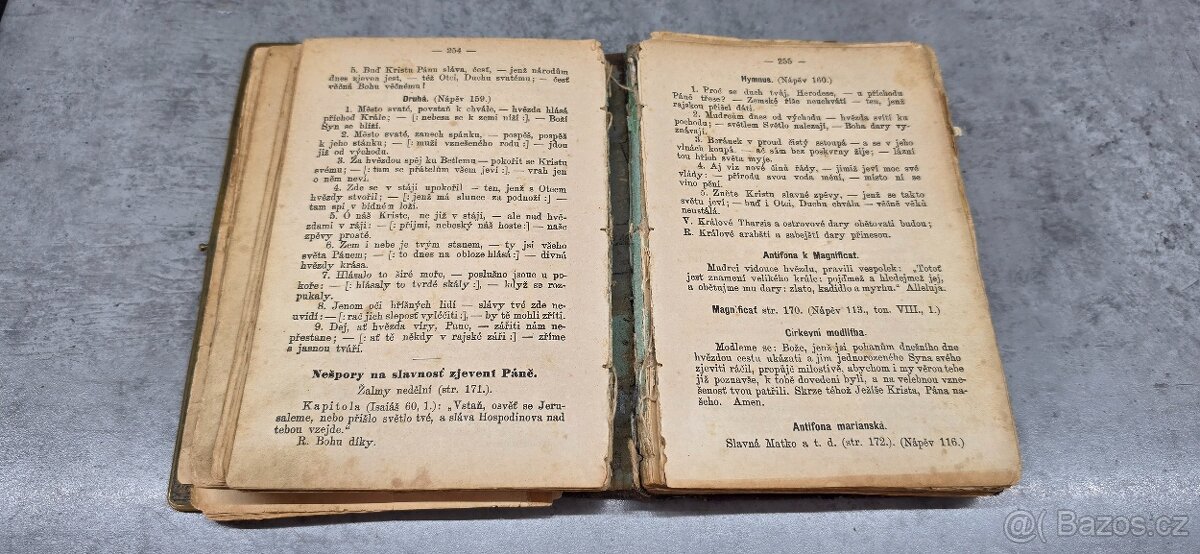 — 254 —
5. Buď Kristu Pánu sláva, česť, — jenž národům
dnes zjeven jest, — též Otci, Duchu svatému; — česť
věčná Bohu věčnému!
Druhá. (Nápěv 159.)
1. Město svaté, povstaň k chvále, — hvězda hlásá
příchod Krále; — [: nebesa se k zemi níží :], — Boží
Syn se blíží.
2. Město svaté, zanech spánku, — pospěš, pospěš
k jeho stánku; — [: muži vznešeného rodu :] — jdou
již od východu.
3. Za hvězdou spěj ku Betlemu — pokořit se Kristu
svému; — [: tam se přátelům všem jeví :] — vrah jen
o něm neví.
4. Zde se v stáji upokořil — ten, jenž s Otcem
hvězdy stvořil; — [: jenž má slunce za podnoží :] —
tam spí v bídném loži.
5. Ó náš Kriste, ne již v stáji, — ale nad hvě-
zdami v ráji: — [: přijmi, nebeský náš hoste :] — naše
zpěvy prosté.
6. Zem i nebe je tvým stanem, — ty jsi všeho
světa Pánem; — [: to dnes na obloze hlásá :] — divná
hvězdy krása.
7. Hlásalo to širé moře, — poslušno jsouc u po-
koře: — [: hlásaly to tvrdé skály :], — když se roz-
pukaly.
8. Jenom oči hříšných lidí — slávy tvé zde ne-
uvidí: — [: rač jich slepost vyléčiti :], — by tě mohli zříti.
9. Dej, ať hvězda víry, Pane, — zářiti nám ne-
přestane; — [: ať tě někdy v rajské záři :] — zříme
a jasnou tváří.
Nešpory na slavnosť zjevení Páně.
Žalmy nedělní (str. 171.).
Kapitola (Isaiáš 60, 1.): „Vstaň, osvěť se Jeru-
saleme, nebo přišlo světlo tvé, a sláva Hospodinova nad
tebou vzejde.“
R. Bohu díky.
— 255 —
Hymnus. (Nápěv 160.)
1. Proč se duch tvůj, Herodese, — u příchodu
Páně třese? — Zemské říše neuchvátí — ten, jenž
rajskou přišel dáti.
2. Mudrcům dnes od východu — hvězda svítí ku
pochodu; — světlem Světlo nalezají, — Boha dary vy-
znávají.
3. Beránek v proud čistý sestoupá — a se v jeho
vlnách koupá. — ač sám bez poskvrny žije; — lázní
tou hřích světa myje.
4. Aj viz nové činů řády, — jimiž jeví moc své
vlády: — přírodu svou voda mění, — místo ní se
víno pění.
5. Zněte Kristu slavné zpěvy, — jenž se takto
světu jeví; — buď i Otci, Duchu chvála — věčně věků
neustálá.
V. Králové Tharsis a ostrovové dary obětovati budou;
R. Králové arabští a sabejští dary přinesou.
Antifona k Magnificat.
Mudrci vidouce hvězdu, pravili vespolek: „Totoť
jest znamení velikého krále: pojďmež a hledejmež jej,
a obětujme mu dary: zlato, kadidlo a myrhu.“ Alleluja.
Magnificat str. 170. (Nápěv 113., ton. VIII., 1.)
Církevní modlitba.
Modleme se: Bože, jenž jsi pohanům dnešního dne
hvězdou cestu ukázati a jim jednorozeného Syna svého
zjeviti ráčil, propůjč milostivě, abychom i my věrou tebe
již poznavše, k tobě dovedeni byli, a na velebnou vzne-
šenosť tvou patřili. Skrze téhož Ježíše Krista, Pána na-
šeho. Amen.
Antifona marianská.
Slavná Matko a t. d. (str. 172.). (Nápěv 116.)
@ Bazos.cz